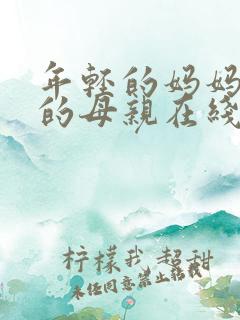 年轻的妈妈
的母亲在线
柠檬我超甜
未经同意禁止转载